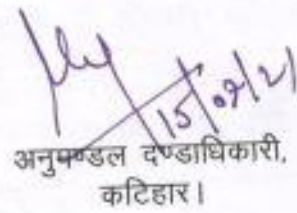 15/02/21
अनुमण्डल दण्डाधिकारी,
कटिहार।